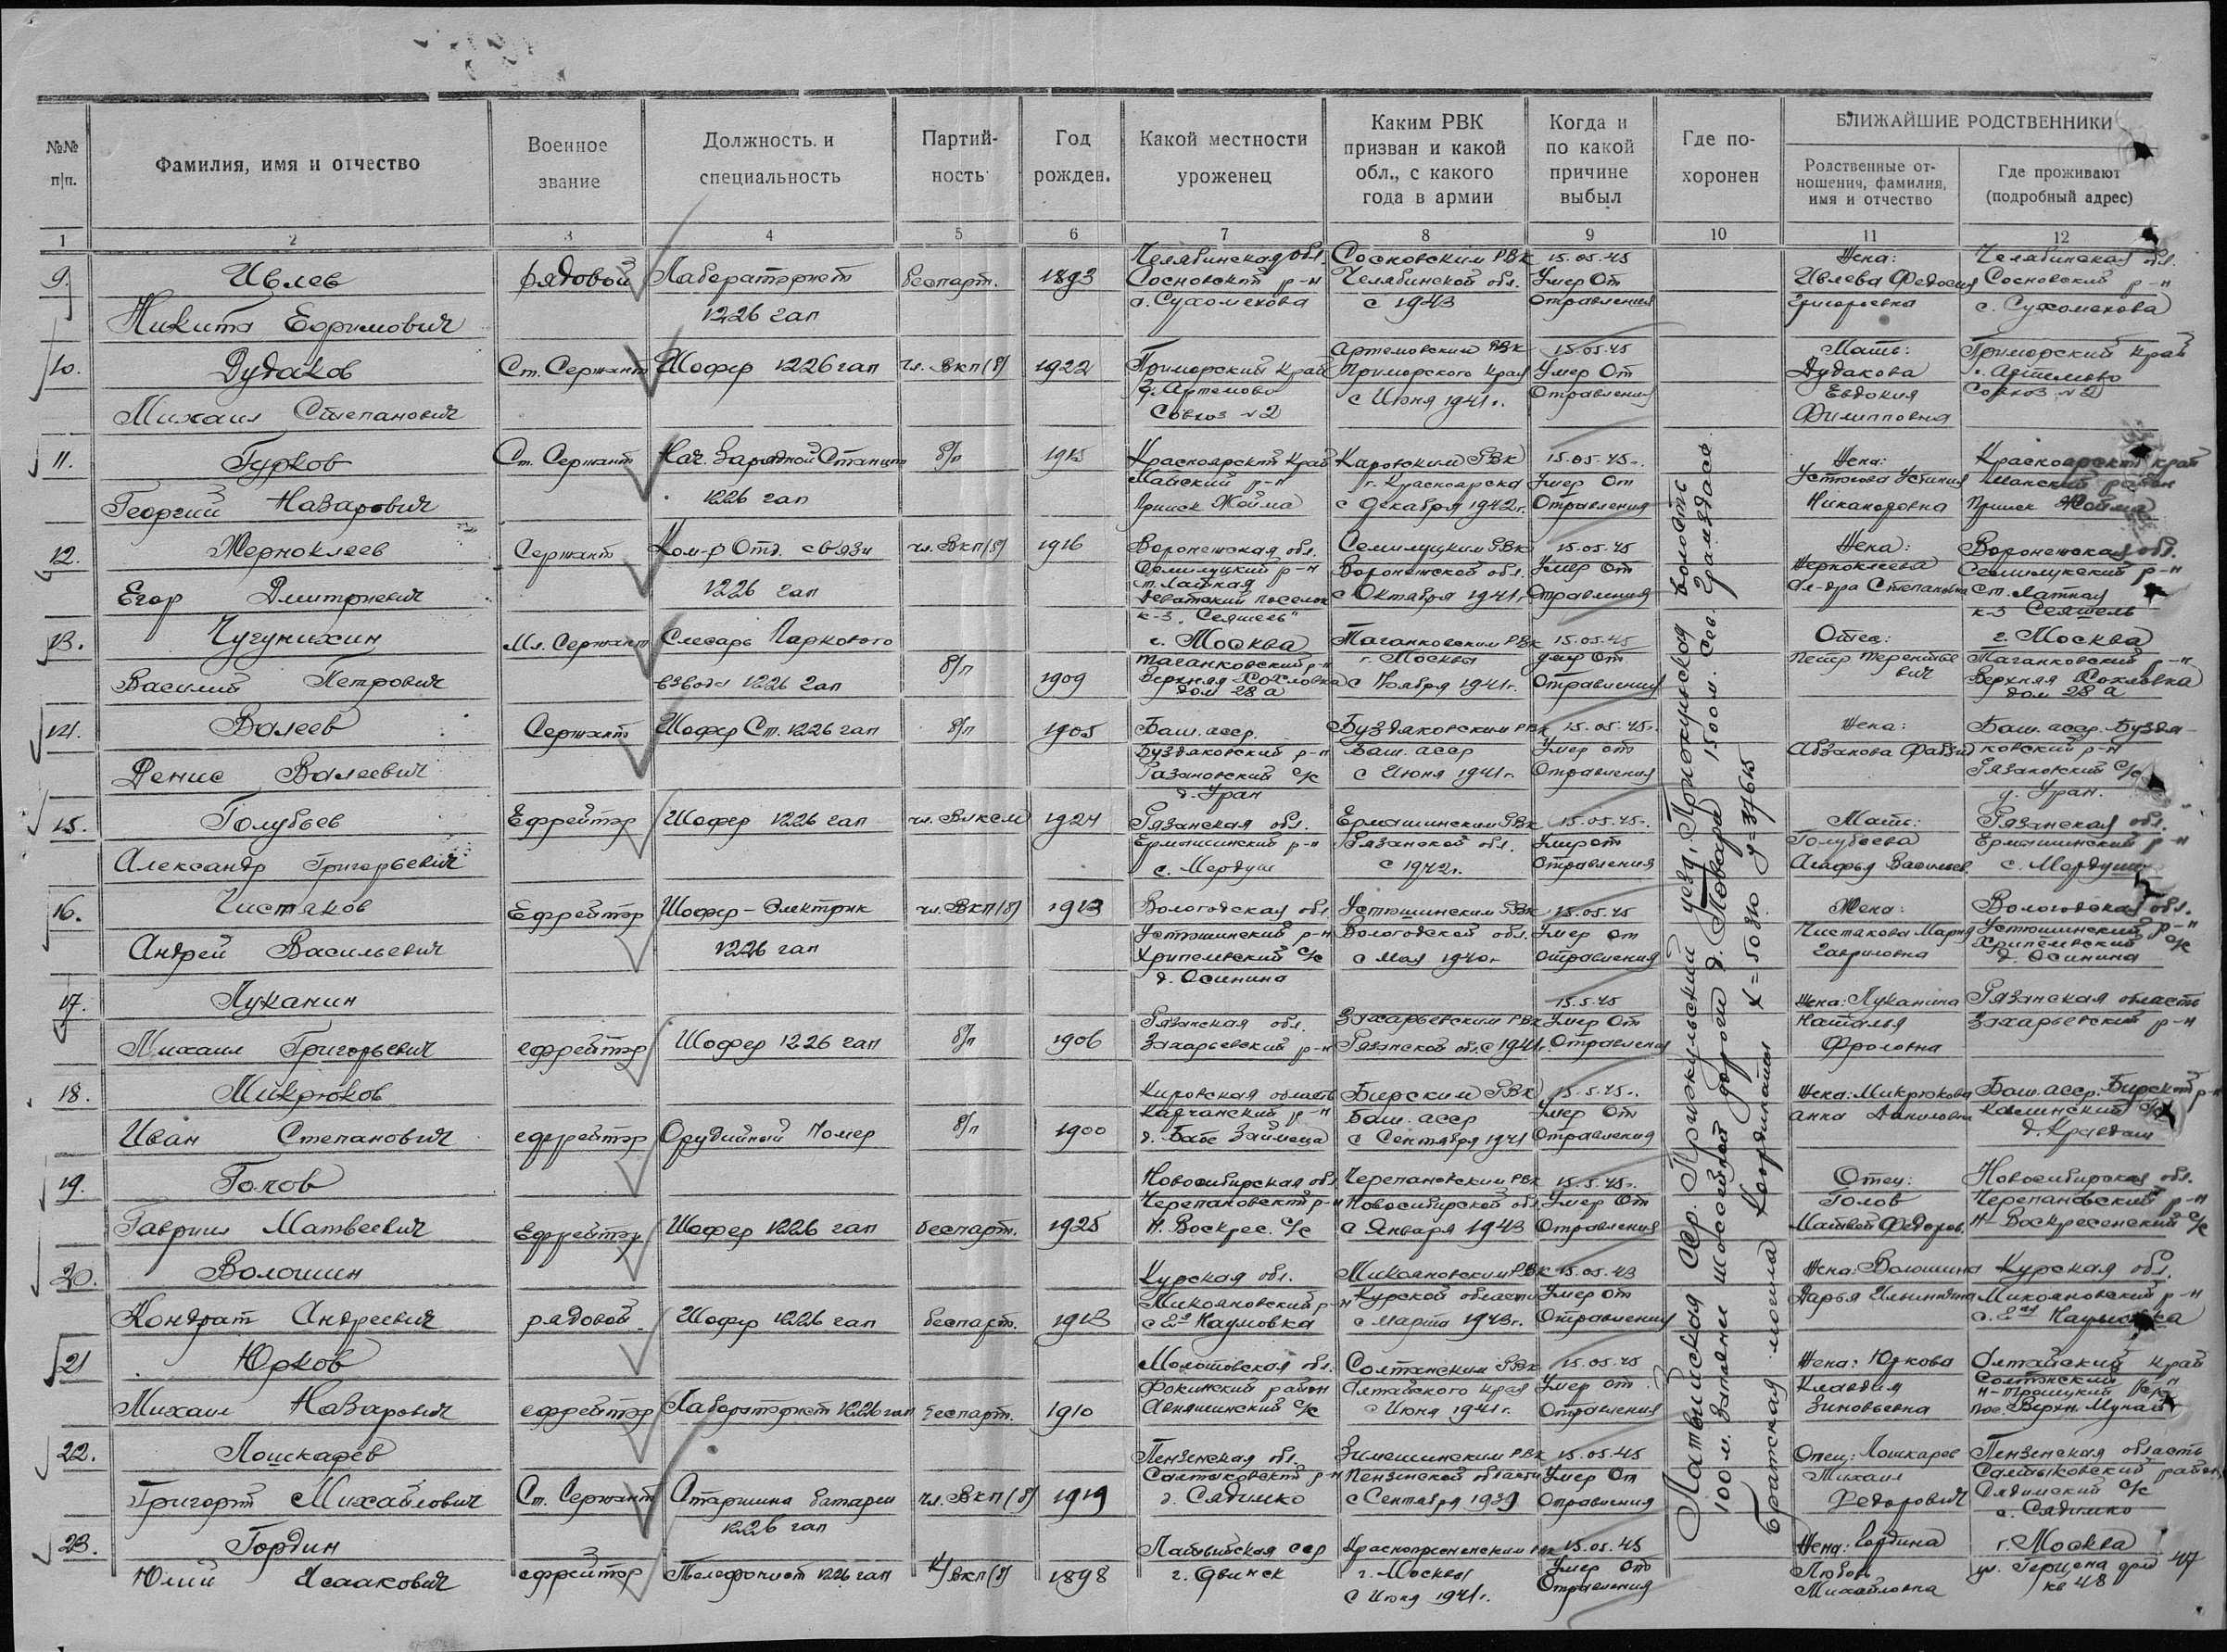 №№ п|п.
Фамилия, имя и отчество
Военное звание
Должность и специальность
Партий-ность
Год рожден.
Какой местности уроженец
Каким РВК призван и какой обл., с какого года в армии
Когда и по какой причине выбыл
Где по-хоронен
БЛИЖАЙШИЕ РОДСТВЕННИКИ
Родственные от-ношения, фамилия, имя и отчество
Где проживают (подробный адрес)
1 2 3 4 5 6 7 8 9 10 11 12
9. Ивлев рядовой Лаборатэрист беспарт. 1893 Челябинская обл. Сосновским РВК 15.05.45 Жена: Челябинская обл.
Сосновский р-н Челябинской обл. Умер От Ивлева Федосия Сосновский р-н
Никита Ефримович 1226 гап с 1943 Отравления Григорьевна
10. Дудаков Ст. Сержант Шофер 1226 гап чл. Вкп(б) 1922 Приморский Край Артемовским РВК 15.05.45 Мать: Приморский край
г. Артемово Приморского Края Умер От Дудакова г. Артемово
Михаил Степанович Совхоз №2 с Июня 1941г. Отравления Евдокия Филипповна Совхоз №2
11. Гурков Ст. Сержант Нач. Зарядной Станции б/п 1915 Красноярский Край Кировским РВК 15.05.45г. Жена: Красноярский край
Манский р-н г. Красноярска Умер От Устюгова Устиния Манский район
Георгий Назарович 1226 гап Прииск Жойма с декабря 1942г. Отравления Никаноровна Прииск Жойма
12. Жерноклеев Сержант Ком-р Отд. связи чл. Вкп(б) 1916 Воронежская обл. Семилуцким РВК 15.05.45 Жена: Воронежская обл.
Семилуцкий р-н Воронежской обл. Умер От Жерноклеева Семилукский р-н
Егор Дмитриевич 1226 гап с Октября 1941г. Отравления Ал-дра Степановна ст. Латная
к-з Сеятель
13. Чугунихин Мл. Сержант Слесарь Паркового г. Москва Таганковским РВК 15.05.45 Отец: г. Москва
б/п Таганковский р-н г. Москвы умер От Петр Терентьевич Таганковский р-н
Василий Петрович взвода 1226 гап 1909 Верхняя Хохловка дом 28 а с Ноября 1941г. Отравления Верхняя Хохловка дом 28 а
14. Валеев Сержант Шофер Ст. 1226 гап б/п 1905 Баш. асср. Буздяковским РВК 15.05.45г. Жена: Баш. асср. Буздя-
Буздяковский р-н Баш. асср Умер от ковский р-н
Денис Валеевич с Июня 1941г. Отравления
д. Уран д. Уран.
15. Голубьев Ефрейтэр Шофер 1226 гап чл. Влксм 1924 Рязанская обл. Ермишинским РВК 15.05.45г. Мать: Рязанская обл.
Ермишинский р-н Рязанской обл. Умер от Голубьева Ермишинский р-н
Александр Григорьевич с. Мердуш с 1942г. Отравления Агафья Васильев. с. Мердуш
16. Чистяков Ефрейтэр Шофер – Электрик чл. Вкп(б) 1913 Вологодская обл Устюшинским РВК 15.05.45 Жена: Вологодская обл.
Устюшинский р-н Вологодской обл. Умер от Чистякова Мария Устюшинский р-н
Андрей Васильевич 1226 гап Хрипелевский с/с с Мая 1940г Отравления Гавриловна Хрипелевский с/с
д. Осинина д. Осинина
17. Луканин 15.5.45 Жена: Луканина Рязанская область
Рязанская обл. Захарьевским РВК Умер От Наталья Захарьевский р-н
Михаил Григорьевич ефрейтэр Шофер 1226 гап б/п 1906 Захарьевский р-н Рязанской обл. с 1941г. Отравления Фроловна
18. Микрюков Кировская область Бирским РВК 15.5.45г. Жена: Микрюкова Баш. асср. Бирский р-н
Баш. асср Умер От Анна Даниловна
Иван Степанович ефрейтэр Орудийный Номер б/п 1900 с Сентября 1941 Отравления
19. Голов Новосибирская обл. Черепановским РВК 15.5.45г. Отец: Новосибирская обл.
Черепановский р-н Новосибирской обл Умер От Голов Черепановский р-н
Гавриил Матвеевич Ефрейтэр Шофер 1226 гап беспарт. 1925 Н. Воскрес. с/с с Января 1943 Отравления Матвей Федоров. Н-Воскресенский с/с
20. Волошин Курская обл. Микояновским РВК 15.05.43 Жена: Волошина Курская обл.
Микояновский р-н Курской области Умер От Дарья Ильинична Микояновский р-н
Кондрат Андреевич рядовой Шофер 1226 гап беспарт. 1913 с. 2-я Наумовка с марта 1943г. Отравления с. 2-ая Наумовка
21 Юрков Молотовская обл. Солтанским РВК 15.05.45 Жена: Юркова Алтайский край
Фокинский район Алтайского края Умер от Клавдия Солтонский
Михаил Назарович ефрейтэр Лаборатэрист 1226 гап беспарт. 1910 с Июня 1941г. Отравления Зиновьевна
22. Лошкарев Пензенская обл. 15.05.45 Отец: Лошкарев Пензенская область
Салтыковский р-н Пензенской области Умер От Михаил Салтыковский район
Григорий Михайлович Ст. Сержант Старшина батареи чл. Вкп(б) 1919 с Сентября 1939 Отравления Федорович
1226 гап
23. Гордин Латвийская сср Краснопресненским РВК 15.05.45 Жена: Гордина г. Москва
Юлий Исаакович ефрейтор Телефонист 1226 гап к/Вкп(б) 1898 г. Двинск г. Москвы Умер От Любовь ул. Герцена дом 47
с Июня 1941г. Отравления Михайловна кв 48
Латвийская ССР. Прижкульский уезд, волость
100 м. Западнее шоссейной дороги 1500 м. Сев.
Братская могила Координаты X=50810 У=37615